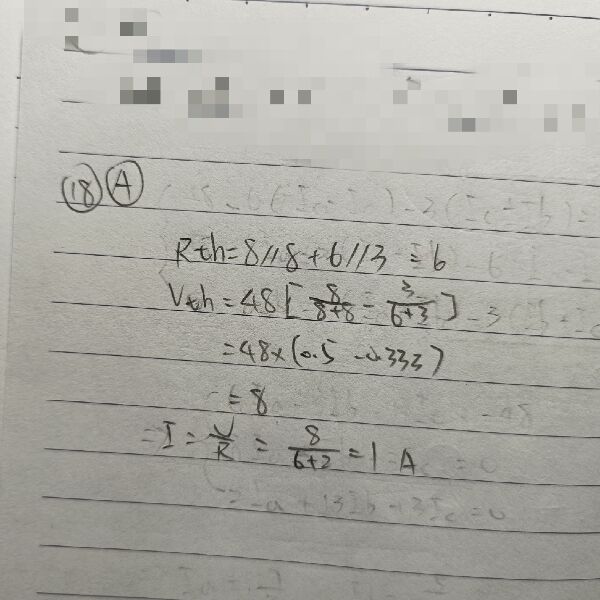 ⑱ Ⓐ
Rth=8//8+6//3 = 6
Vth=48[8/(8+8) - 3/(6+3)]
=48×(0.5-0.333)
=8
=I=V/R=8/(6+2)=1 A